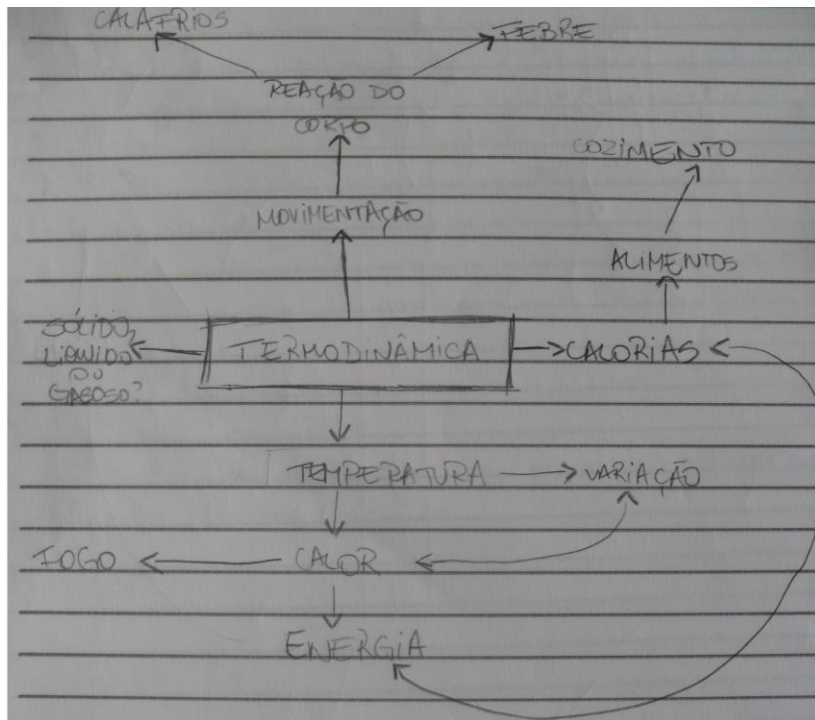 CALAFRIOS
FEBRE
REAÇÃO DO
CORPO
COZIMENTO
MOVIMENTAÇÃO
ALIMENTOS
SÓLIDO,
LÍQUIDO
OU
GASOSO?
TERMODINÂMICA
CALORIAS
TEMPERATURA
VARIAÇÃO
FOGO
CALOR
ENERGIA